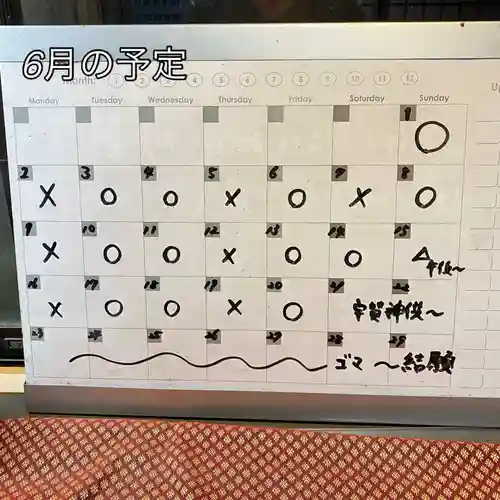 6月の予定
Month: 1 2 3 4 5 6 7 8 9 10 11 12
Monday Tuesday Wednesday Thursday Friday Saturday Sunday
1
○
2 3 4 5 6 7 8
× ○ ○ × ○ × ○
9 10 11 12 13 14 15
× ○ ○ × ○ ○ △午後~
16 17 18 19 20 21 22
× ○ ○ × ○ 宇賀神供~
23 24 25 26 27 28 29
ゴマ ~結願